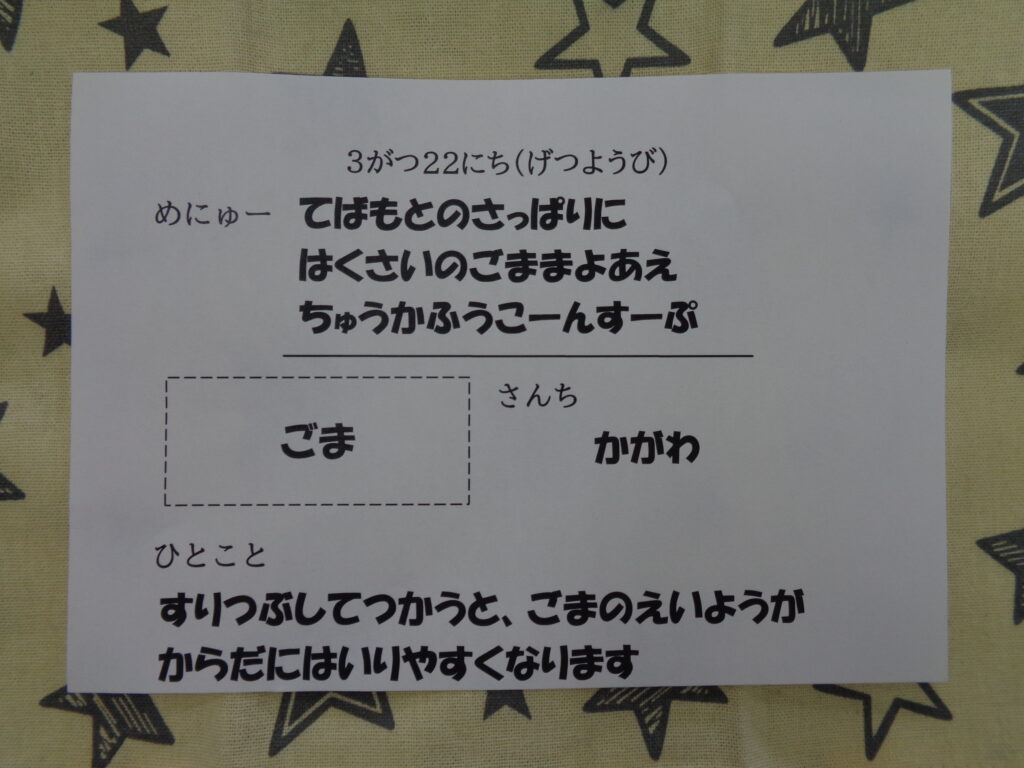 3がつ22にち(げつようび)
めにゅー てばもとのさっぱりに
はくさいのごままよあえ
ちゅうかふうこーんすーぷ
さんち
ごま かがわ
ひとこと
すりつぶしてつかうと、ごまのえいようが
からだにはいりやすくなります